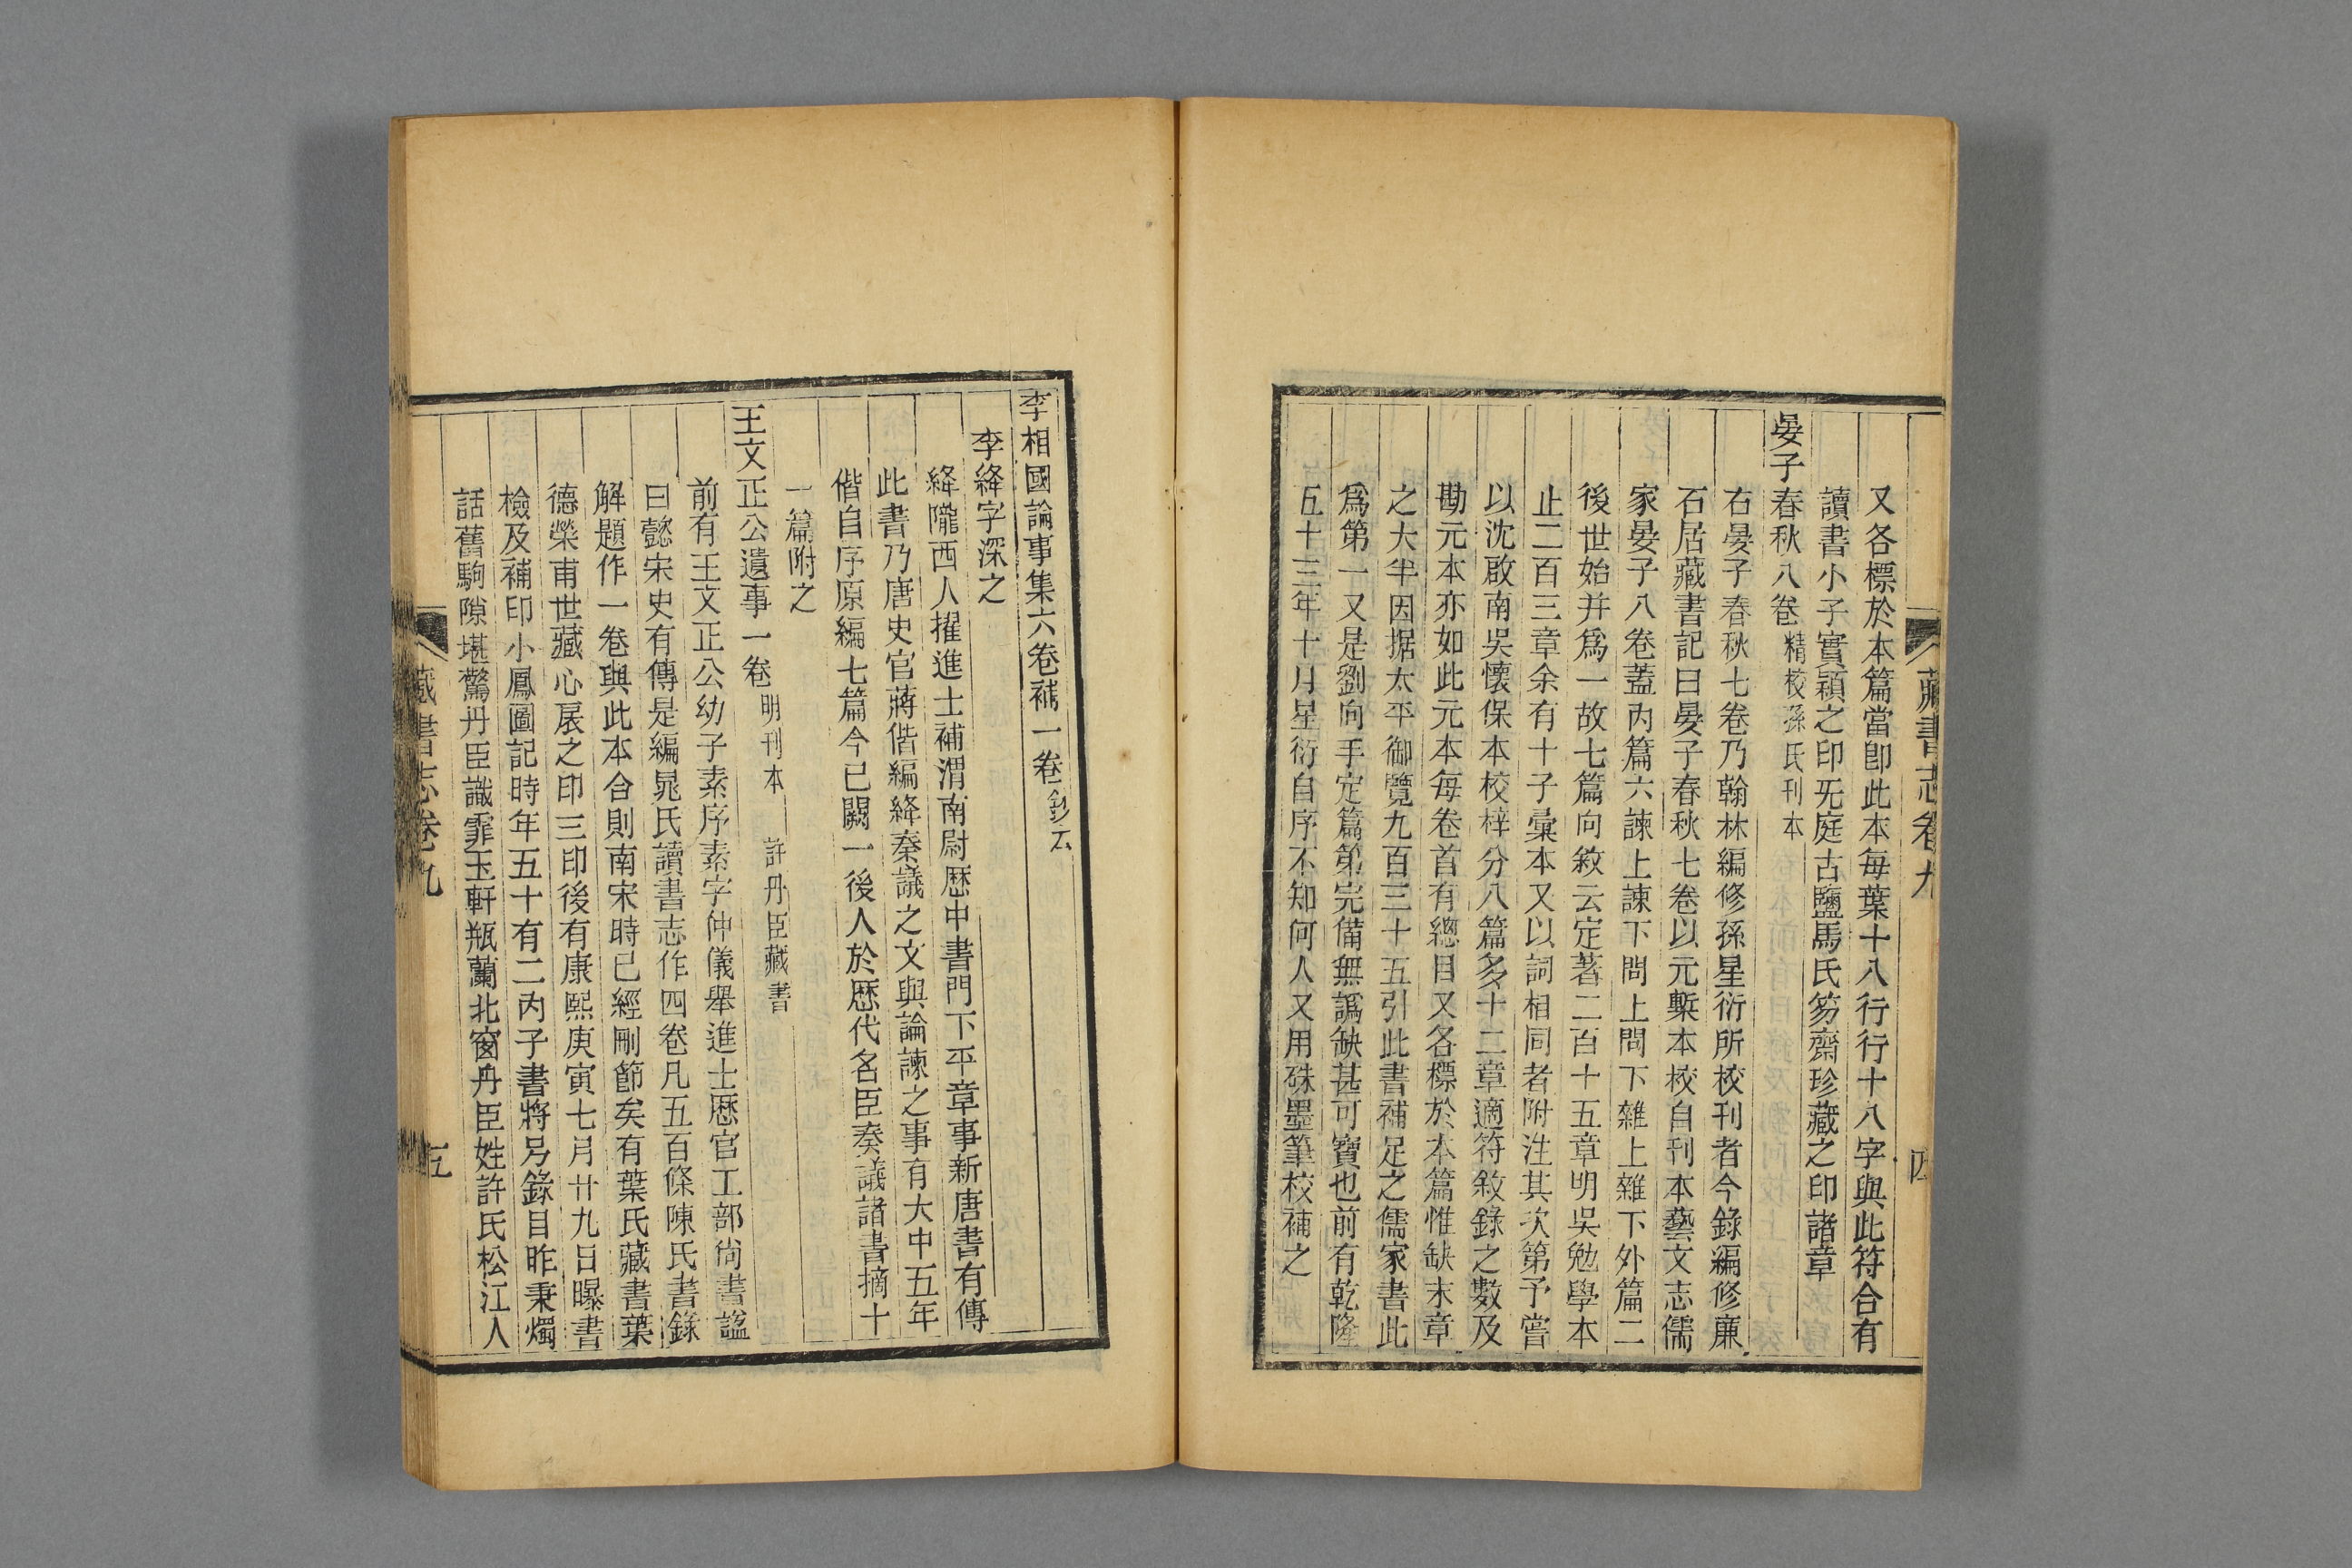 又各標於本篇當卽此本每葉十八行行十八字與此符合有
讀書小子實穎之印旡庭古鹽馬氏笏齋珍藏之印諸章
晏子春秋八卷 精校孫氏刊本
右晏子春秋七卷乃翰林編修孫星衍所校刊者今錄編修廉
石居藏書記曰晏子春秋七卷以元槧本校自刊本藝文志儒
家晏子八卷蓋內篇六諫上諫下問上問下雜上雜下外篇二
後世始幷爲一故七篇向敘云定著二百十五章明吳勉學本
止二百三章余有十子彙本又以詞相同者附注其次第予嘗
以沈啟南吳懷保本校梓分八篇多十二章適符敘錄之數及
勘元本亦如此元本每卷首有總目又各標於本篇惟缺末章
之大半因据太平御覽九百三十五引此書補足之儒家書此
爲第一又是劉向手定篇第完備無譌缺甚可寶也前有乾隆
五十三年十月星衍自序不知何人又用硃墨筆校補之
藏書志卷九
四
李相國論事集六卷補一卷
李絳字深之
絳隴西人擢進士補渭南尉歷中書門下平章事新唐書有傳
此書乃唐史官蔣偕編絳奏議之文與論諫之事有大中五年
偕自序原編七篇今已闕一後人於歷代名臣奏議諸書摘十
一篇附之
王文正公遺事一卷 明刊本 許丹臣藏書
前有王文正公幼子素序素字仲儀舉進士歷官工部尙書諡
曰懿宋史有傳是編晁氏讀書志作四卷凡五百條陳氏書錄
解題作一卷與此本合則南宋時已經刪節矣有葉氏藏書葉
德榮甫世藏心扆之印三印後有康熙庚寅七月廿九日曝書
檢及補印小鳳圖記時年五十有二丙子書將另錄目昨秉燭
話舊駒隙堪驚丹臣識霏玉軒瓶蘭北窗丹臣姓許氏松江人
藏書志卷九
五